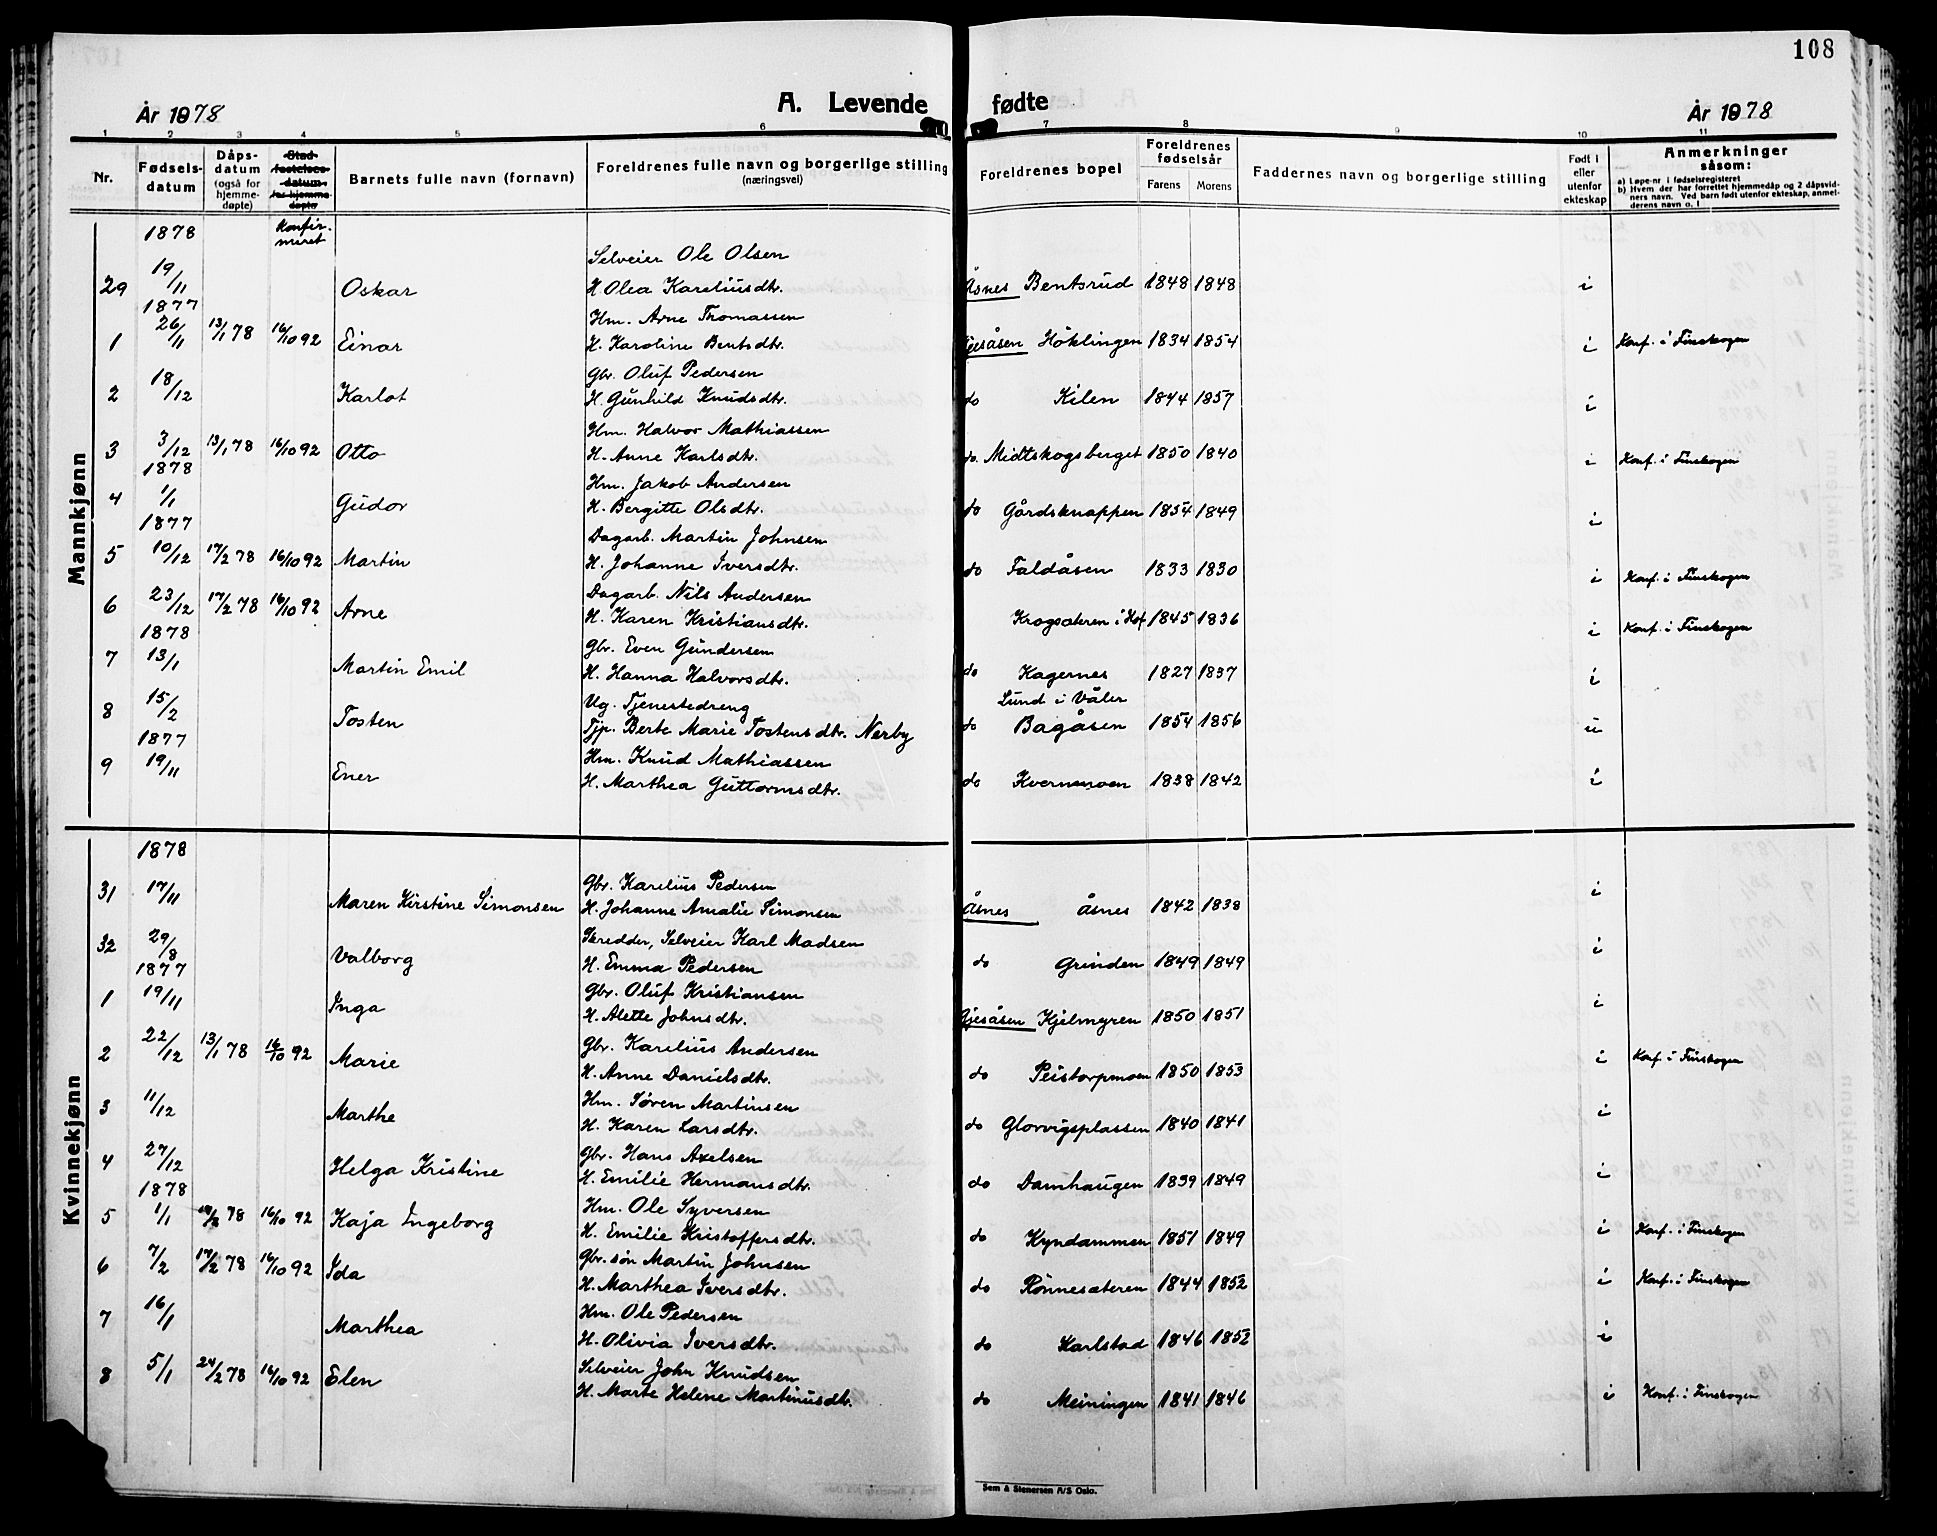 108
År 1878
A. Levende fødte
År 1878
1 2 3 4 5 6 7 8 9 10 11
Nr. Fødselsdatum Dåpsdatum (også for hjemmedøpte) Stadfestelsesdatum for hjemmedøpte Barnets fulle navn (fornavn) Foreldrenes fulle navn og borgerlige stilling (næringsvei) Foreldrenes bopel Foreldrenes fødselsår Farens Morens Faddernes navn og borgerlige stilling Født i eller utenfor ekteskap Anmerkninger såsom:
a) Løpe-nr i fødselsregisteret
b) Hvem der har forrettet hjemmedåp og 2 dåpsvidners navn. Ved barn født utenfor ekteskap, anmelderens navn o. l
Mannkjønn
1878 Konfirmeret
Selveier Ole Olsen
29 19/11 Oskar H Olea Kareliusdtr. Åsnes Bentsrud 1848 1848 i
1877 Hm. Arne Thomassen
1 26/11 13/1 78 16/10 92 Einar H. Karoline Bentsdtr. Gjesåsen Höklingen 1834 1854 i Konf. i Finskogen
Gbr. Oluf Pedersen
2 18/12 Karlot H. Gunhild Knudsdtr. do Kilen 1844 1857 i
Hm. Halvor Mathiassen
3 3/12 13/1 78 16/10 92 Otto H. Anne Karlsdtr. do. Midtskogsberget 1850 1840 i Konf. i Finskogen
1878 Hm. Jakob Andersen
4 1/1 Gudor H. Bergitte Olsdtr. do Gårdsknappen 1854 1849 i
1877 Dagarb. Martin Johnsen
5 10/12 17/2 78 16/10 92 Martin H. Johanne Iversdtr. do Faldåsen 1833 1830 i Konf. i Finskogen
Dagarb. Nils Andersen
6 23/12 17/2 78 16/10 92 Arne H. Karen Kristiansdtr. Krogsæteren i Hof 1845 1836 i Konf. i Finskogen
1878 Gbr. Even Gundersen
7 13/1 Martin Emil H. Hanna Halvorsdtr. do Kagernes 1827 1837 i
Ug. Tjenestedreng Lund i Våler
8 15/2 Tosten Tjp. Berte Marie Tostensdtr. Nerby do Bagåsen 1854 1856 u
1877 Hm. Knud Mathiassen
9 19/11 Ener H. Marthea Guttormsdtr. do Kvernmoen 1838 1842 i
Kvinnekjønn
1878
Gbr. Karelius Pedersen
31 17/11 Maren Kirstine Simonsen H. Johanne Amalie Simonsen Åsnes Åsnes 1842 1838 i
Skredder, Selveier Karl Madsen
32 29/8 Valborg H. Emma Pedersen do Grinden 1849 1849 i
1877 Gbr. Oluf Kristiansen
1 19/11 Inga H. Alette Johnsdtr. Gjesåsen Kjelmyren 1850 1851 i
Gbr. Karelius Andersen
2 22/12 13/1 78 16/10 92 Marie H. Anne Danielsdtr. do Peistorpmoen 1850 1853 i Konf. i Finskogen
Hm. Søren Martinsen
3 11/12 Marthe H. Karen Larsdtr. do Glorvigsplassen 1840 1841 i
Gbr. Hans Axelsen
4 27/12 Helga Kristine H. Emilie Hermansdtr. do Damhaugen 1839 1849 i
1878 Hm. Ole Syversen
5 1/1 78 16/10 92 Kaja Ingeborg H. Emilie Kristoffersdtr. do Kyndammen 1851 1849 i Konf. i Finskogen
Gbr. søn Martin Johnsen
6 7/2 17/2 78 16/10 92 Ida H. Marthea Iversdtr. do Rönnesæteren 1844 1852 i Konf. i Finskogen
Hm. Ole Pedersen
7 16/1 Marthea H. Olivia Iversdtr. do Karlstad 1846 1852 i
Selveier John Knudsen
8 5/1 24/2 78 16/10 92 Elen H. Marte Helene Martinusdtr. do Meiningen 1841 1846 i Konf. i Finskogen
Sem & Stenersen A/S Oslo.